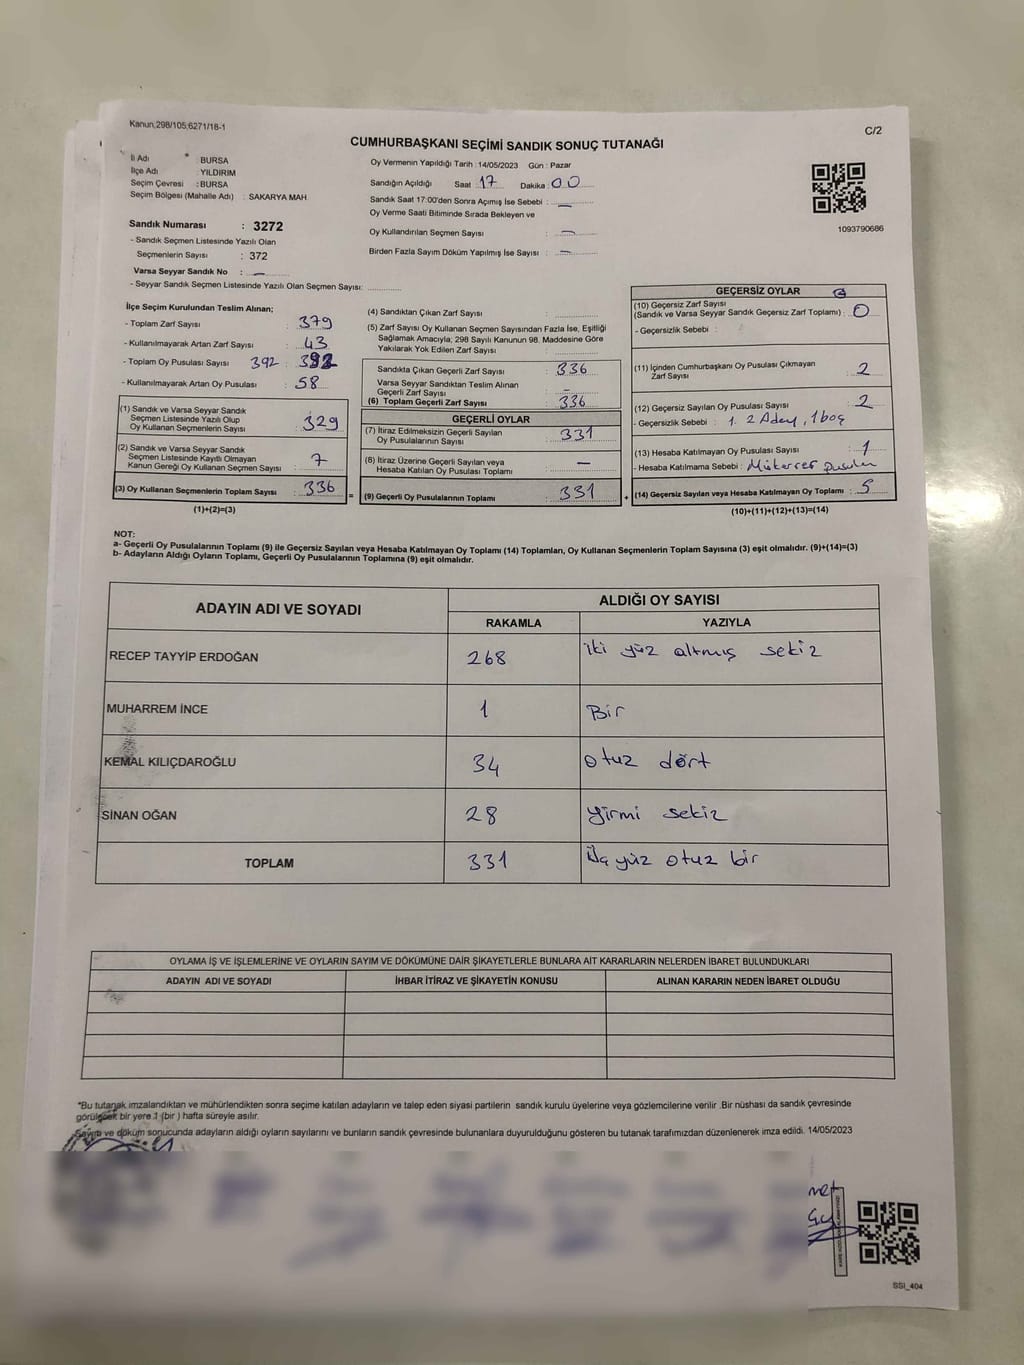 Kanun,298/105;6271/18-1
C/2
CUMHURBAŞKANI SEÇİMİ SANDIK SONUÇ TUTANAĞI
İl Adı : BURSA
İlçe Adı : YILDIRIM
Seçim Çevresi : BURSA
Seçim Bölgesi (Mahalle Adı) : SAKARYA MAH.
Sandık Numarası : 3272
- Sandık Seçmen Listesinde Yazılı Olan
Seçmenlerin Sayısı : 372
Varsa Seyyar Sandık No : —
- Seyyar Sandık Seçmen Listesinde Yazılı Olan Seçmen Sayısı: ..............
Oy Vermenin Yapıldığı Tarih : 14/05/2023 Gün : Pazar
Sandığın Açıldığı Saat : 17 Dakika : 00
Sandık Saat 17:00'den Sonra Açımış İse Sebebi : —
Oy Verme Saati Bitiminde Sırada Bekleyen ve
Oy Kullandırılan Seçmen Sayısı : —
Birden Fazla Sayım Döküm Yapılmış İse Sayısı : —
1093790686
İlçe Seçim Kurulundan Teslim Alınan;
- Toplam Zarf Sayısı : 379
- Kullanılmayarak Artan Zarf Sayısı : 43
- Toplam Oy Pusulası Sayısı 392 : 392
- Kullanılmayarak Artan Oy Pusulası : 58
(1) Sandık ve Varsa Seyyar Sandık
Seçmen Listesinde Yazılı Olup
Oy Kullanan Seçmenlerin Sayısı : 329
(2) Sandık ve Varsa Seyyar Sandık
Seçmen Listesinde Kayıtlı Olmayan
Kanun Gereği Oy Kullanan Seçmen Sayısı : 7
(3) Oy Kullanan Seçmenlerin Toplam Sayısı : 336
(1)+(2)=(3)
=
(4) Sandıktan Çıkan Zarf Sayısı : ..............
(5) Zarf Sayısı Oy Kullanan Seçmen Sayısından Fazla İse, Eşitliği
Sağlamak Amacıyla; 298 Sayılı Kanunun 98. Maddesine Göre
Yakılarak Yok Edilen Zarf Sayısı : ..............
Sandıkta Çıkan Geçerli Zarf Sayısı : 336
Varsa Seyyar Sandıktan Teslim Alınan
Geçerli Zarf Sayısı : —
(6) Toplam Geçerli Zarf Sayısı : 336
GEÇERLİ OYLAR
(7) İtiraz Edilmeksizin Geçerli Sayılan
Oy Pusulalarının Sayısı : 331
(8) İtiraz Üzerine Geçerli Sayılan veya
Hesaba Katılan Oy Pusulası Toplamı : —
(9) Geçerli Oy Pusulalarının Toplamı : 331
+
GEÇERSİZ OYLAR
(10) Geçersiz Zarf Sayısı
(Sandık ve Varsa Seyyar Sandık Geçersiz Zarf Toplamı) : 0
- Geçersizlik Sebebi :
(11) İçinden Cumhurbaşkanı Oy Pusulası Çıkmayan
Zarf Sayısı : 2
(12) Geçersiz Sayılan Oy Pusulası Sayısı : 2
- Geçersizlik Sebebi : 1. 2 Aday, 1 boş
(13) Hesaba Katılmayan Oy Pusulası Sayısı : 1
- Hesaba Katılmama Sebebi : Mükerrer pusula
(14) Geçersiz Sayılan veya Hesaba Katılmayan Oy Toplamı : 5
(10)+(11)+(12)+(13)=(14)
NOT:
a- Geçerli Oy Pusulalarının Toplamı (9) ile Geçersiz Sayılan veya Hesaba Katılmayan Oy Toplamı (14) Toplamları, Oy Kullanan Seçmenlerin Toplam Sayısına (3) eşit olmalıdır. (9)+(14)=(3)
b- Adayların Aldığı Oyların Toplamı, Geçerli Oy Pusulalarının Toplamına (9) eşit olmalıdır.
ADAYIN ADI VE SOYADI
ALDIĞI OY SAYISI
RAKAMLA YAZIYLA
RECEP TAYYİP ERDOĞAN 268 iki yüz altmış sekiz
MUHARREM İNCE 1 Bir
KEMAL KILIÇDAROĞLU 34 otuz dört
SİNAN OĞAN 28 yirmi sekiz
TOPLAM 331 üç yüz otuz bir
OYLAMA İŞ VE İŞLEMLERİNE VE OYLARIN SAYIM VE DÖKÜMÜNE DAİR ŞİKAYETLERLE BUNLARA AİT KARARLARIN NELERDEN İBARET BULUNDUKLARI
ADAYIN ADI VE SOYADI İHBAR İTİRAZ VE ŞİKAYETİN KONUSU ALINAN KARARIN NEDEN İBARET OLDUĞU
*Bu tutanak imzalandıktan ve mühürlendikten sonra seçime katılan adayların ve talep eden siyasi partilerin sandık kurulu üyelerine veya gözlemcilerine verilir .Bir nüshası da sandık çevresinde
görülecek bir yere 1 (bir ) hafta süreyle asılır.
Sayım ve döküm sonucunda adayların aldığı oyların sayılarını ve bunların sandık çevresinde bulunanlara duyurulduğunu gösteren bu tutanak tarafımızdan düzenlenerek imza edildi. 14/05/2023
SSI_404